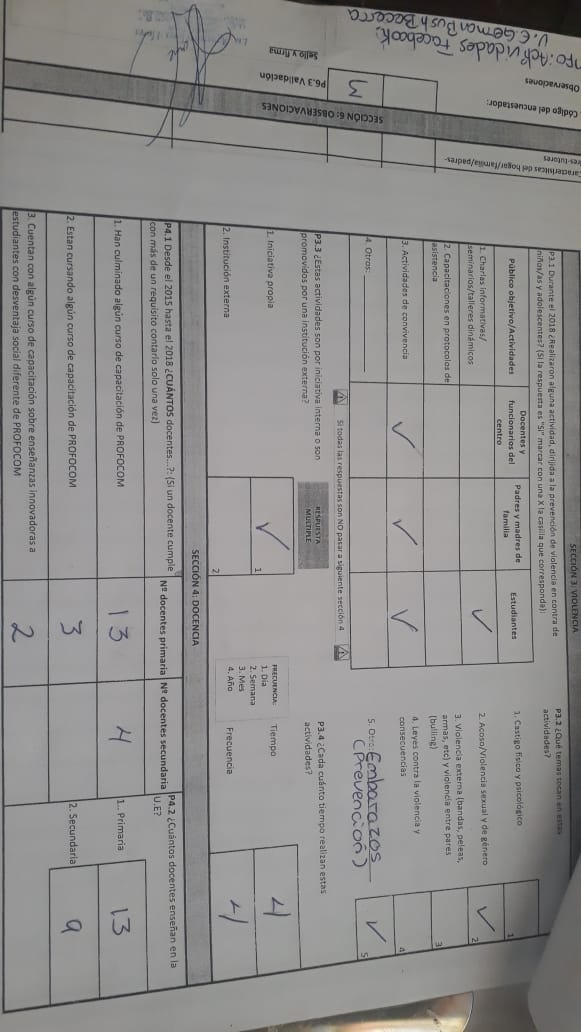 SECCIÓN 3: VIOLENCIA
P3.1 Durante el 2018 ¿Realizaron alguna actividad, dirijida a la prevención de violencia en contra de
niños/as y adolescentes? (Si la respuesta es "SI" marcar con una X la casilla que corresponda):
Público objetivo/Actividades
Docentes y
funcionarios del
centro
Padres y madres de
familia
Estudiantes
1. Charlas informativas/
seminarios/talleres dinámicos
✓
2. Capacitaciones en protocolos de
asistencia
3. Actividades de convivencia
✓ ✓ ✓
4. Otros:
Si todas las respuestas son NO pasar a siguiente sección 4
P3.2 ¿Qué temas tocan en estas
actividades?
1. Castigo físico y psicológico
1
2. Acoso/Violencia sexual y de género
✓ 2
3. Violencia externa (bandas, peleas,
armas, etc) y violencia entre pares
(bulling)
3
4. Leyes contra la violencia y
consecuencias
4
5. Otro: Embarazos
(Prevención)
✓ 5
P3.3 ¿Estas actividades son por iniciativa interna o son
promovidos por una institución externa?
RESPUESTA
MÚLTIPLE
1. Iniciativa propia
✓ 1
2. Institución externa
2
P3.4 ¿Cada cuánto tiempo realizan estas
actividades?
FRECUENCIA:
1. Día
2. Semana
3. Mes
4. Año
Tiempo
4
Frecuencia
4
SECCIÓN 4: DOCENCIA
P4.1 Desde el 2015 hasta el 2018 ¿CUÁNTOS docentes...?: (Si un docente cumple
con más de un requisito contarlo solo una vez)
Nº docentes primaria
Nº docentes secundaria
1. Han culminado algún curso de capacitación de PROFOCOM
13 4
2. Estan cursando algún curso de capacitación de PROFOCOM
3
3. Cuentan con algún curso de capacitación sobre enseñanzas innovadoras a
estudiantes con desventaja social diferente de PROFOCOM
2
P4.2 ¿Cuántos docentes enseñan en la
U.E?
1.. Primaria
13
2. Secundaria
9
terísticas del hogar/familia/padres-
tutores
SECCIÓN 6: OBSERVACIONES
Código del encuestador:
3
P6.3 Validación
Sello y firma
Observaciones
Actividades Facebook.
U.E. German Bush Becerra